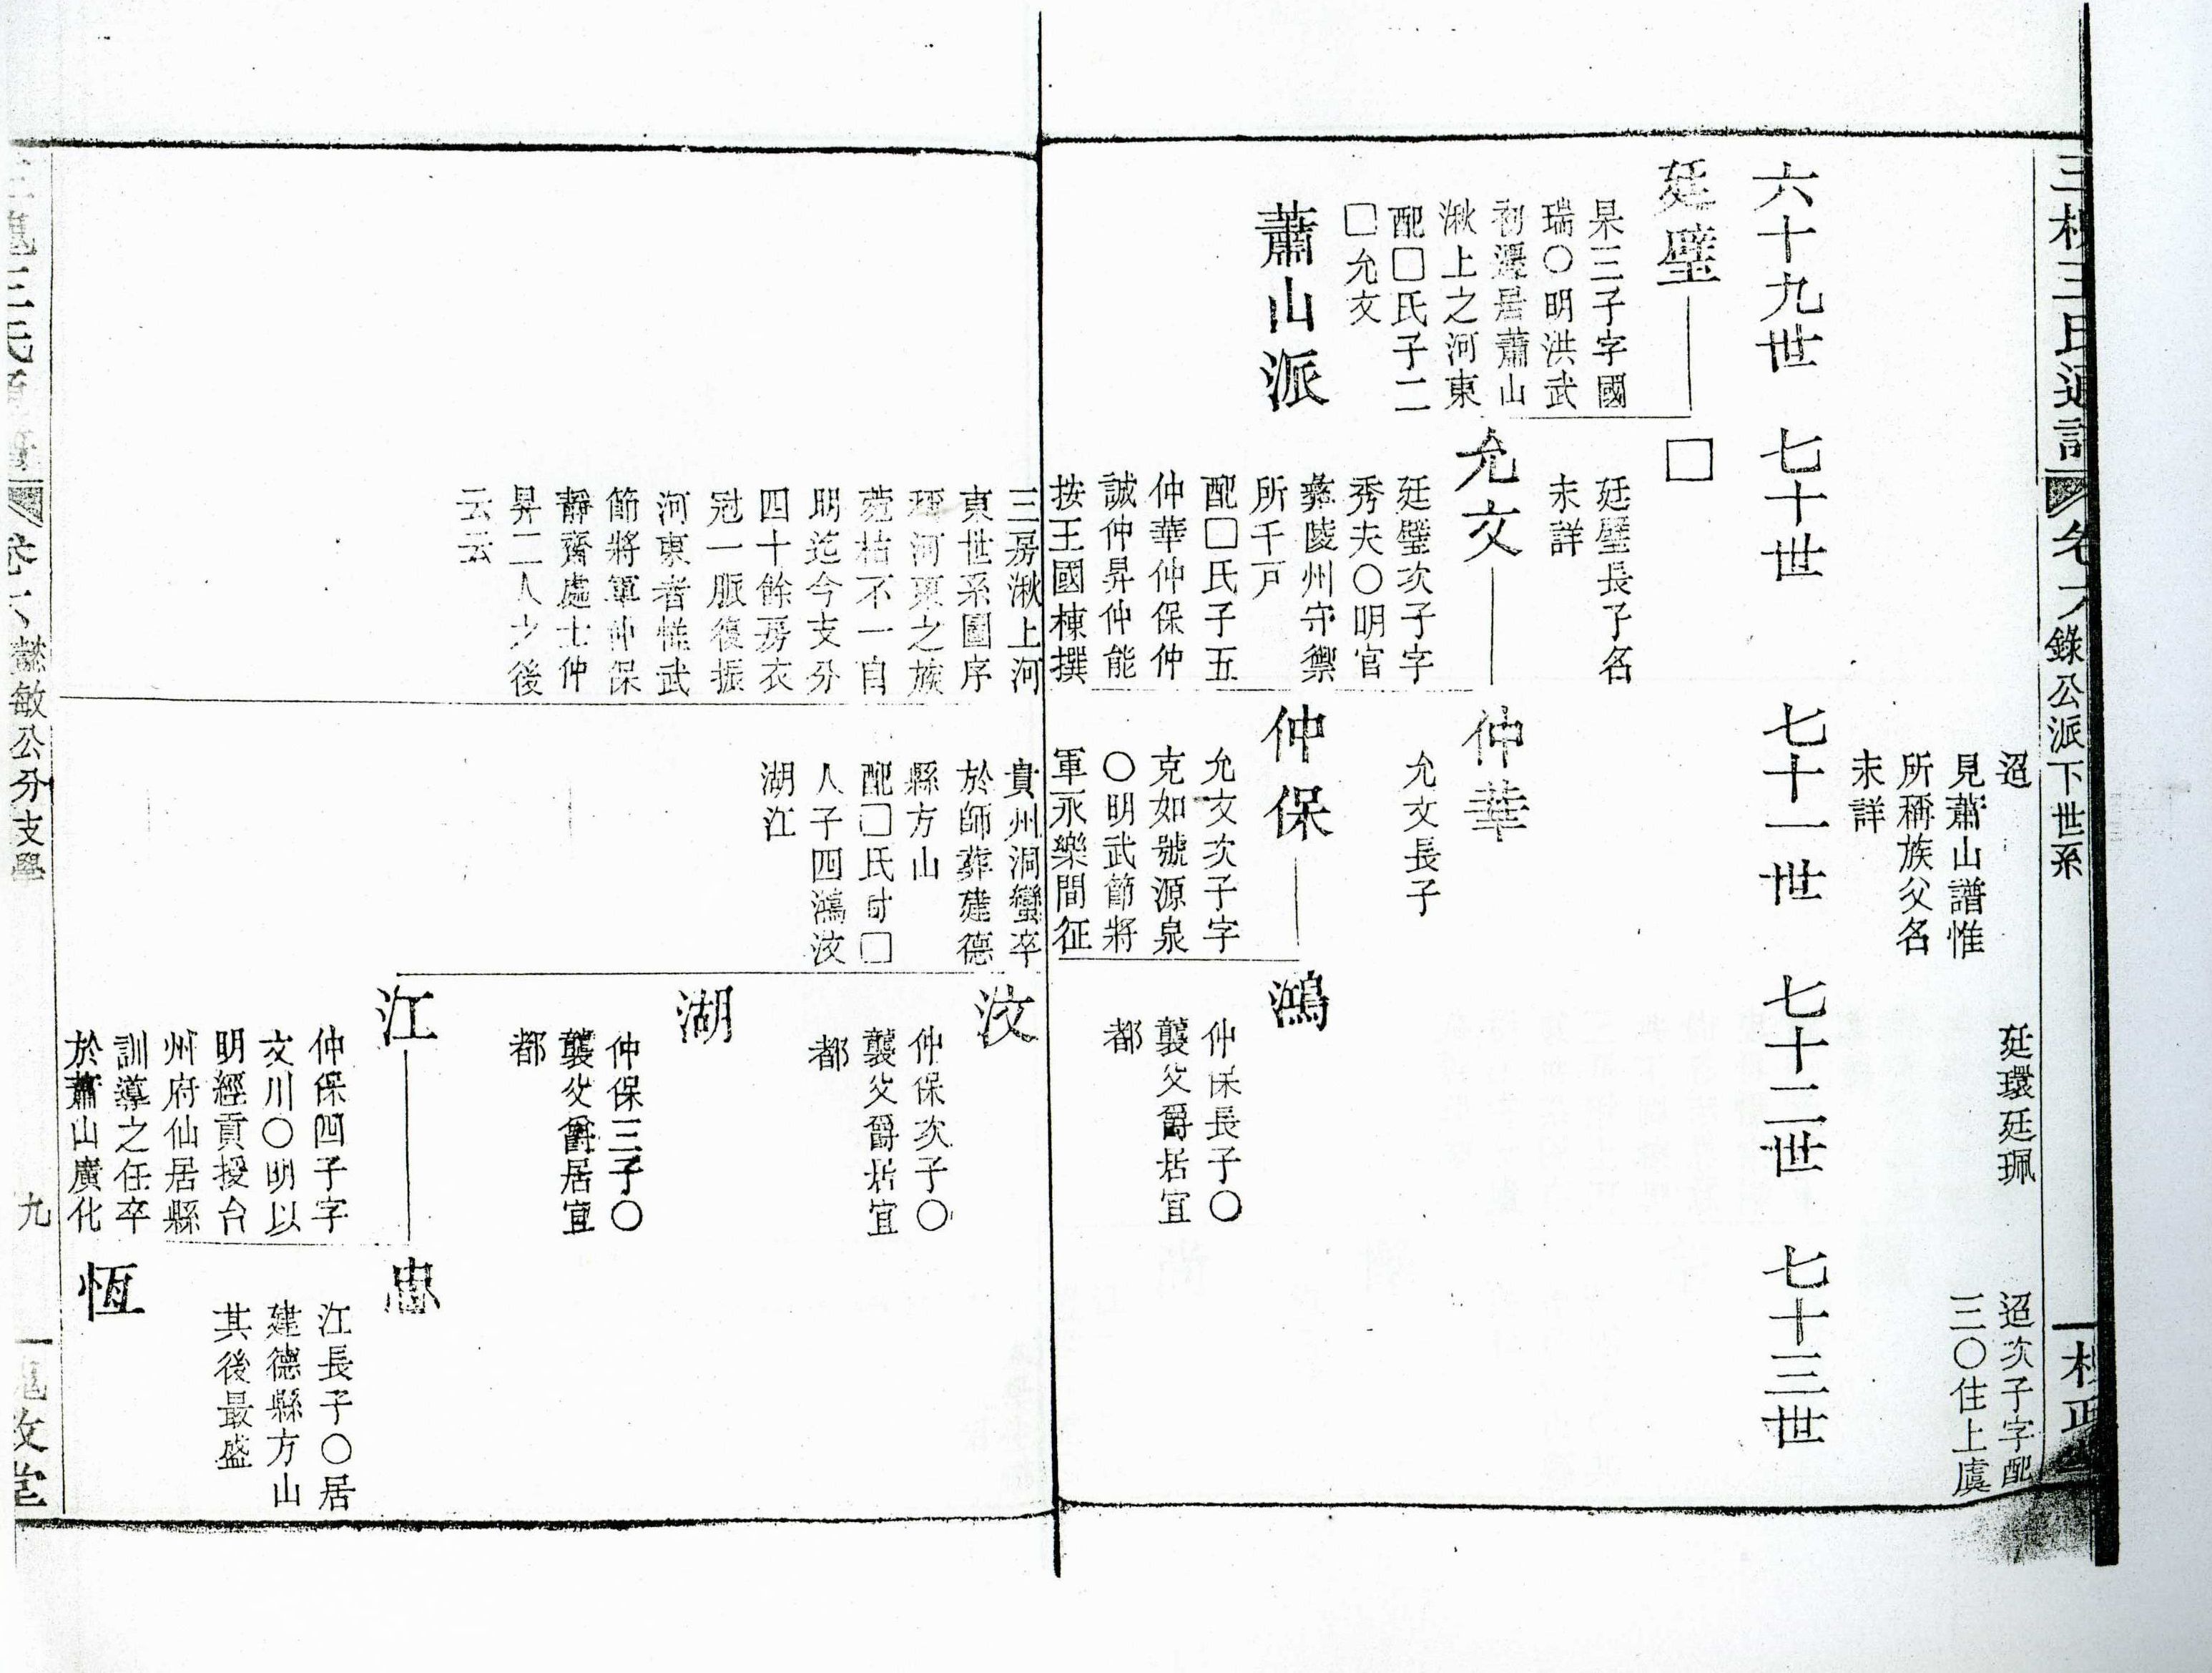 三槐王氏通譜
卷六
錄公派下世系
迢
見蕭山譜惟
所稱族父名
未詳
廷環廷珮
迢次子字配
三〇住上虞
六十九世
七十世
七十一世
七十二世
七十三世
廷璧
杲三子字國
瑞〇明洪武
初遷居蕭山
湫上之河東
配□氏子二
□允文
蕭山派
□
廷璧長子名
未詳
允文
廷璧次子字
秀夫〇明官
彝陵州守禦
所千戶
配□氏子五
仲華仲保仲
誠仲昇仲能
按王國棟撰
三房湫上河
東世系圖序
河東之族
菀枯不一自
明迄今支分
四十餘房衣
冠一脈復振
河東者惟武
節將軍仲保
靜齋處士仲
昇二人之後
云云
仲華
允文長子
仲保
允文次子字
克如號源泉
〇明武節將
軍永樂間征
貴州洞蠻卒
於師葬建德
縣方山
配□氏□
人子四鴻汶
湖江
鴻
仲保長子〇
襲父爵居宜
都
汶
仲保次子〇
襲父爵居宜
都
湖
仲保三子〇
襲父爵居宜
都
江
仲保四子字
文川〇明以
明經貢授台
州府仙居縣
訓導之任卒
於蕭山廣化
忠
江長子〇居
建德縣方山
其後最盛
恆
懿敏公分支學
九
槐政堂